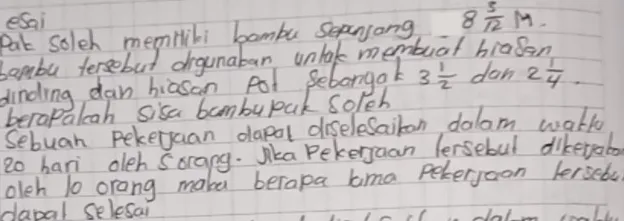 esai
Pak Soleh memiliki bambu sepanjang 8 5/12 M.
bambu tersebut digunakan untuk membuat hiasan
dinding dan hiasan pot sebanyak 3 1/2 dan 2 1/4.
berapakah sisa bambu pak Soleh
Sebuah Pekerjaan dapat diselesaikan dalam waktu
20 hari oleh Sorang. Jika Pekerjaan tersebut dikerjaka
oleh 10 orang maka berapa lama Pekerjaan tersebu
dapat Selesai